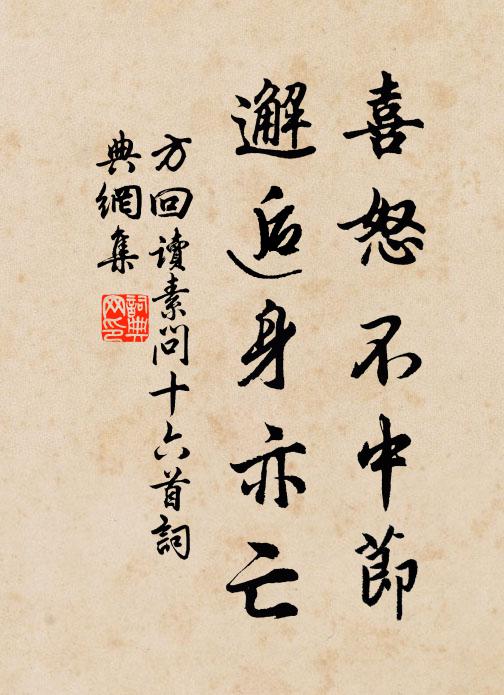 喜怒不中節
邂逅身亦亡
方回讀素問十六首詞
典網集
詞典
网印